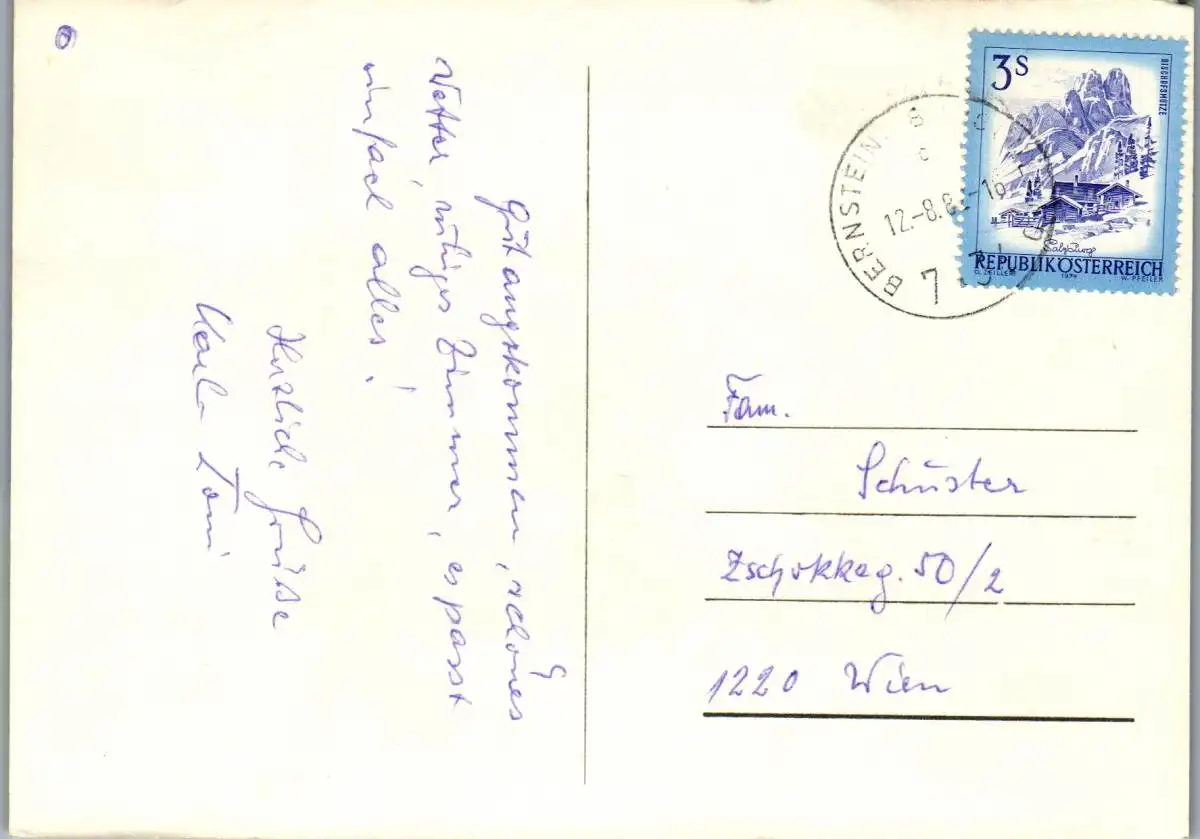 Gut angekommen, schönes
Wetter, ruhiges Zimmer, es passt
einfach alles!
Herzliche Grüsse
Toni
3S
BISCHOFSMÜTZE
Salzburg
REPUBLIK ÖSTERREICH
O. ZEILLER 1974 W. PFEILER
BERNSTEIN
12.-8.8
7
Fam.
Schuster
Zschokkeg. 50/2
1220 Wien